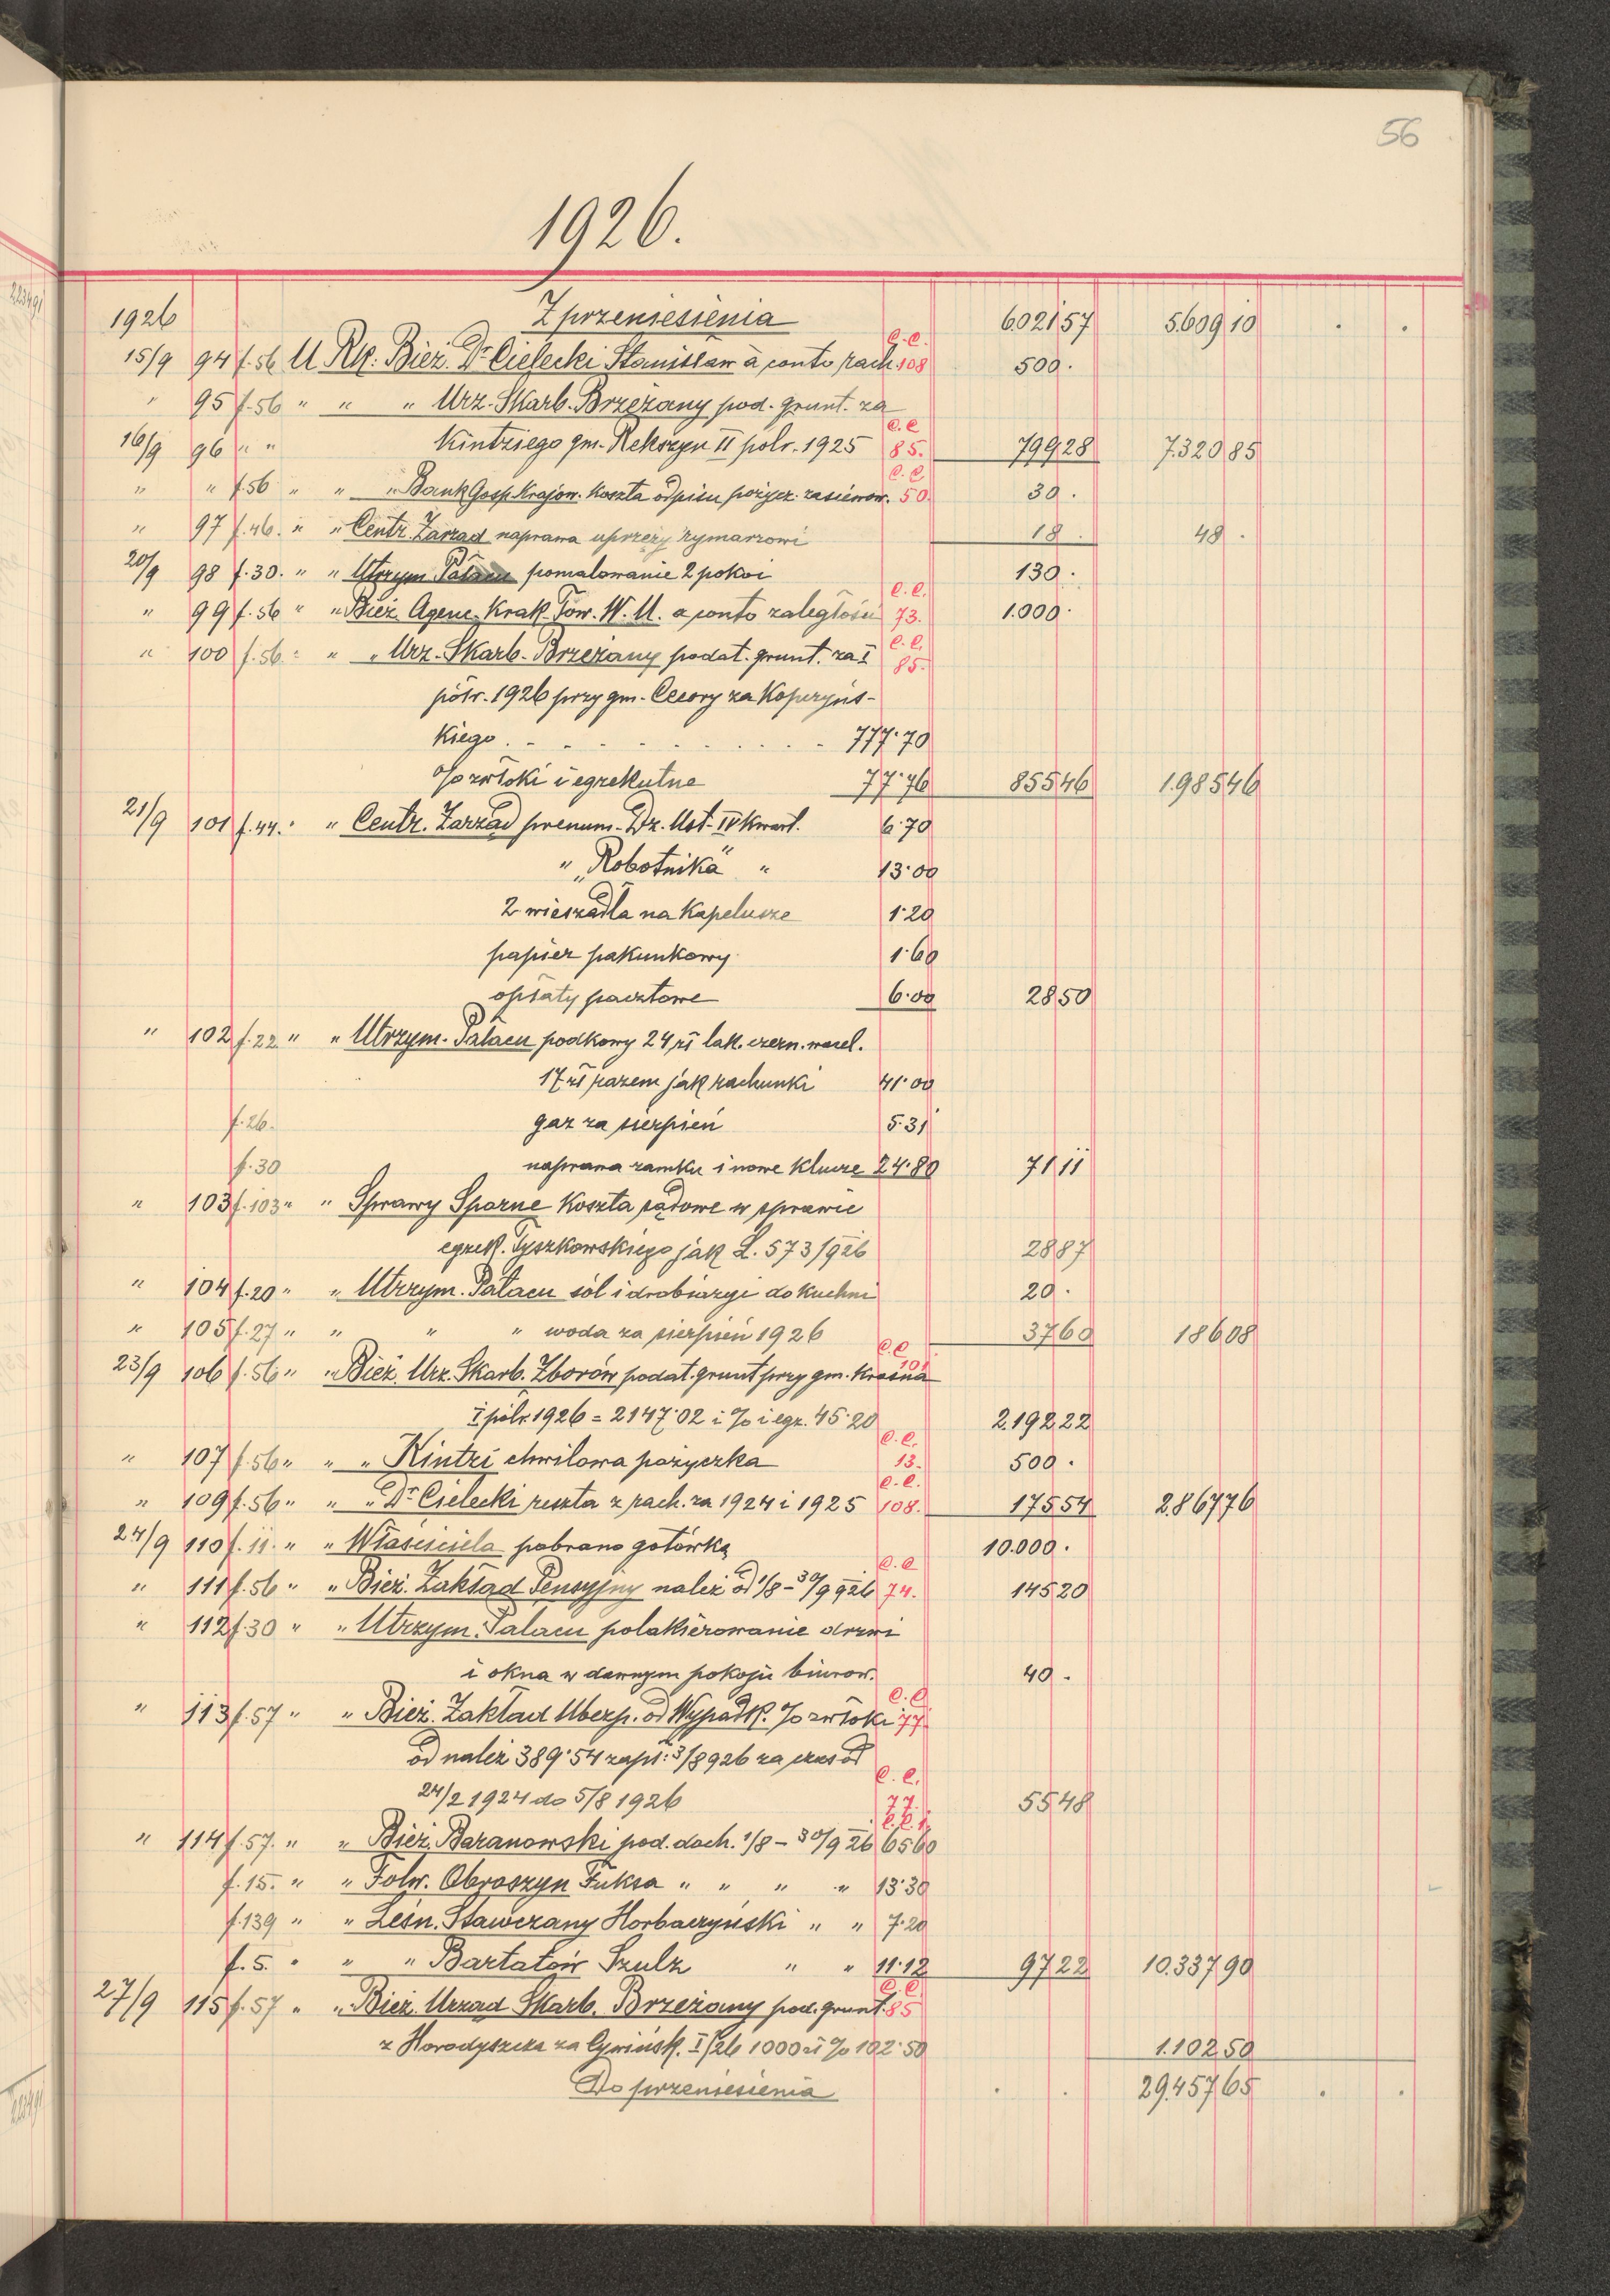 56
1926.
1926 Z przeniesienia 6.021 57 5.609 10 . .
15/9 94 f. 56 U Rk. Bież. Dr Cielecki Stanisław à conto rach. c.c. 108 500 .
" 95 f. 56 " " " Urz. Skarb. Brzeżany pod. grunt. za
16/9 96 " " Kintziego gm. Rekszyn II półr. 1925 c.c 85. 799 28 7.320 85
" " f. 56 " " " Bank Gosp. Krajow. koszta odpisu pożycz. zasiewow. c.c 50. 30 .
" 97 f. 46. " " Centr. Zarząd naprawa uprzęży rymarzowi 18 . 48 .
20/9 98 f. 30. " " Utrzym. Pałacu pomalowanie 2 pokoi 130 .
" 99 f. 56 " " Bież. Agenc. Krak. Tow. W. U. a conto zaległości c.c. 73. 1.000 .
" 100 f. 56. " " " Urz. Skarb. Brzeżany podat. grunt. za I c.c. 85.
półr. 1926 przy gm. Cecory za Kopczyńs-
kiego . . . . . . . . . . 777·70
% zwłoki i egzekutne 77·76 855 46 1.985 46
21/9 101 f. 44. " " Centr. Zarząd prenum. Dz. Ust. IV kwart. 6·70
" „Robotnika” " 13·00
2 wieszadła na kapelusze 1·20
papier pakunkowy 1·60
opłaty pocztowe 6·00 28 50
" 102 f. 22 " " Utrzym. Pałacu podkowy 24 zł lak. czern.
17 zł razem jak rachunki 41·00
f. 26. gaz za sierpień 5·31
f. 30 naprawa zamku i nowe klucze 24·80 71 11
" 103 f. 103 " " Sprawy Sporne koszta sądowe w sprawie
egzek. Tyszkowskiego jak L. 573/926 28 87
" 104 f. 20 " " Utrzym. Pałacu sól i drobiazgi do kuchni 20 .
" 105 f. 27 " " " " woda za sierpień 1926 37 60 186 08
23/9 106 f. 56 " " Bież. Urz. Skarb. Zborów podat. grunt przy gm. Krasna c.c 101
I półr. 1926 = 2147·02 i % i egz. 45·20 2.192 22
" 107 f. 56 " " " Kintzi chwilowa pożyczka c.c. 13. 500 .
" 109 f. 56 " " " Dr Cielecki reszta z rach. za 1924 i 1925 c.c. 108. 175 54 2.867 76
24/9 110 f. 11. " " Właściciela pobrano gotówką 10.000 .
" 111 f. 56 " " Bież. Zakład Pensyjny należ od 1/8 – 30/9 926 c.c 74. 145 20
" 112 f. 30 " " Utrzym. Pałacu polakierowanie drzwi
i okna w dawnym pokoju biurow. 40 .
" 113 f. 57 " " Bież. Zakład Ubezp. od Wypadk. % zwłoki c.c 77
od należ 389·54 zapł: 3/8 926 za czas od
24/2 1924 do 5/8 1926 c.c. 77. 55 48
" 114 f. 57. " " Bież. Baranowski pod. doch. 1/8 – 30/9 26 c.c. 65·60
f. 15. " " Folw. Obroszyn Fuksa " " " " 13·30
f. 139 " " Leśn. Stawczany Horbaczyński " " 7·20
f. 5. " " " Bartatów Szulz " " 11·12 97 22 10.337 90
27/9 115 f. 57 " " Bież. Urząd Skarb. Brzeżany pod. grunt. c.c. 85
z Horodyszcza za Cywińsk. I/26 1000 zł % 102·50 1.102 50
Do przeniesienia . . 29.457 65 . .